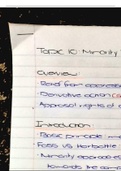 Topic 10: Minority
Overview:
- Relief for oppression
- Derivative action (S
- Appraisal rights of
Introduction:
- Basic principle
- Foss vs Harbottle
- Minority
towards the